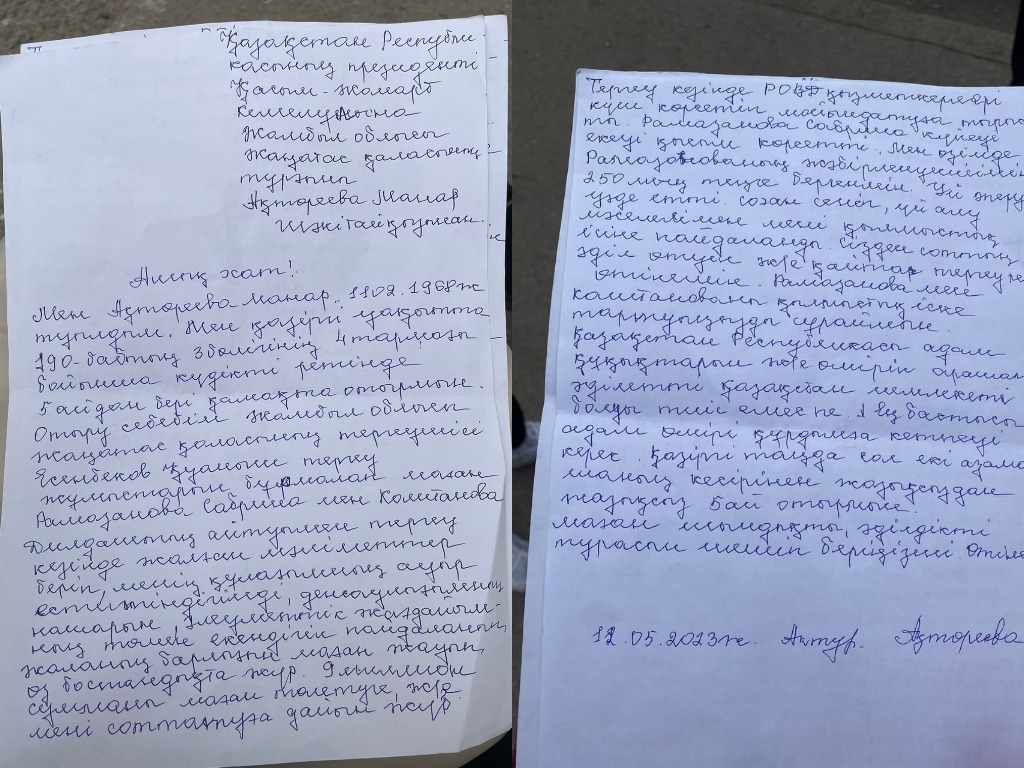 Қазақстан Республи
касының президенті
Қасым-Жомарт
Кемелұлына
Жамбыл облысы
Жаңатас қаласының
тұрғын
Ақтореева Манар
Шәкітайқызынан.
Ашық хат!
Мен Ақтореева Манар. 11.02.1968 ж
туылдым. Мен қазіргі уақытта
190-баптың 3 бөлігінің 4 тармағы
бойынша күдікті ретінде
5 айдан бері қамақта отырмын.
Отыру себебім Жамбыл облысы
Жаңатас қаласының тергеушісі
Есенбеков Қуаныш тергеу
жұмыстарын бұрмалап маған
Рамазанова Сабрина мен Каштанова
Дилдаштың айтуымен тергеу
кезінде жалған мәліметтер
беріп, менің құлағымның ауыр
еститіндігімді, денсаулығымның
нашарын, әлеуметтік жағдайым-
ның төмен екендігін пайдаланып,
жаланың барлығын маған жауып,
өз бостандықта жүр. 9 миллион
сумманы маған төлетуге, және
мені соттатуға дайын жүр
Тергеу кезінде РОВД қызметкерлері
күш көрсетіп мойындатуға тырыс
ты. Рамазанова Сабрина күйеуі
екеуі қысым көрсетті. Мен өзімде
Рамазанованың жәбірленушісімін
250 мың теңге бергенмін. Үй әперу
үзде етті. Соған сеніп, үй алу
мәселесімен мені қылмыстық
ісіне пайдаланды. Сізден соттың
әділ өтуін және қайтар тергеуге
өтінемін. Рамазанова мен
Каштанованы қылмыстық іске
тартуыңызды сұраймын.
Қазақстан Республикасы адам
құқықтарын және өмірін арашала
әділетті Қазақстан мемлекеті
болуы тиіс емес пе. 1
адам өмірі құрдымға кетпеуі
керек. Қазіргі таңда сол екі азама
шаның кесірінен жазықсыздан
жазықсыз 5 ай отырмын.
маған шындықты, әділдікті
турасын шешіп беріңізші өтіне
12.05.2023 ж. Актур. Ақтореева